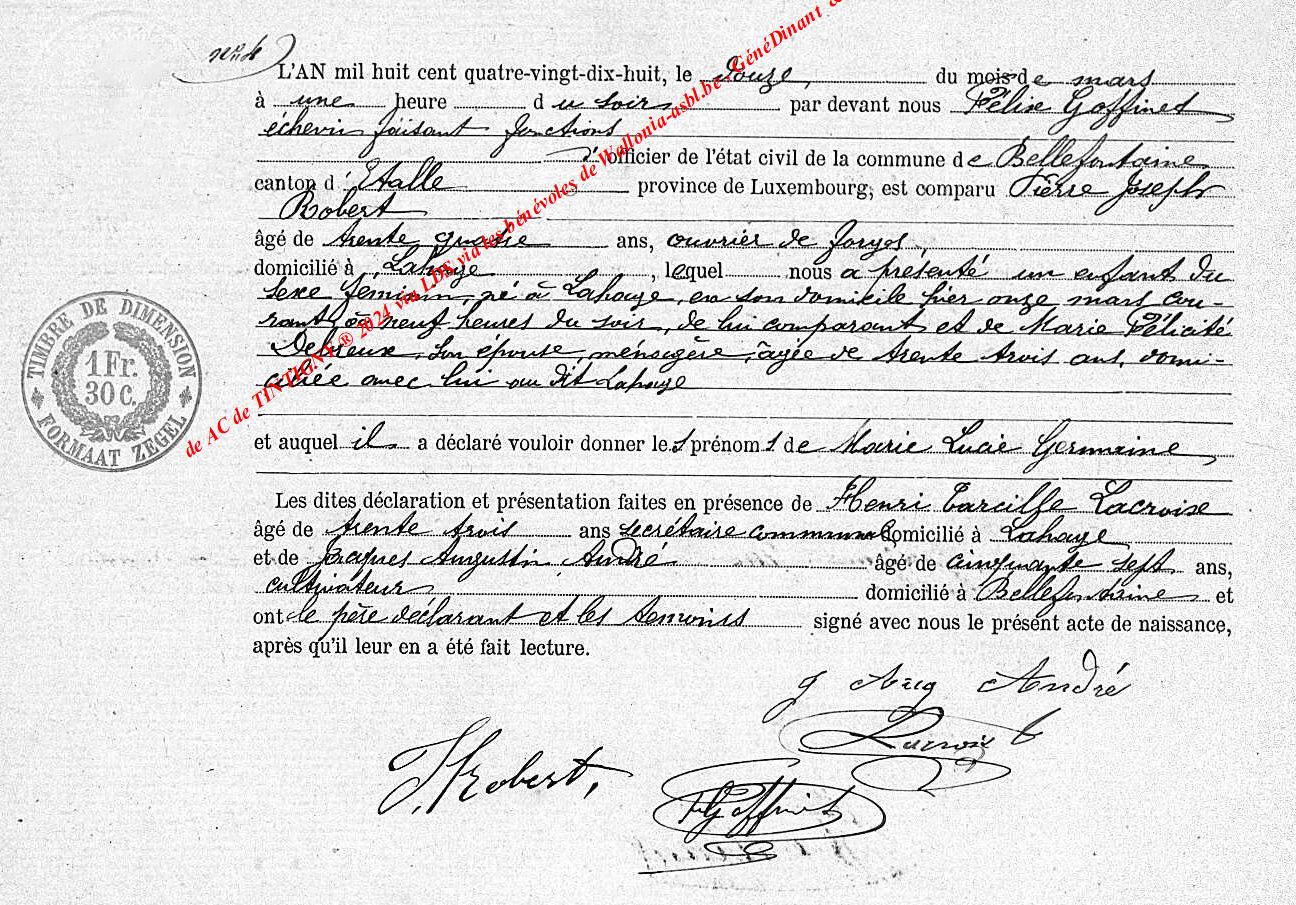 L'AN mil huit cent quatre-vingt-dix-huit, le douze, du mois de mars
à une heure du soir par devant nous Félix Goffinet
échevin faisant fonctions
d'officier de l'état civil de la commune de Bellefontaine
canton d'Etalle province de Luxembourg, est comparu Pierre Joseph
Robert
âgé de trente quatre ans, ouvrier de forges,
domicilié à Lahage, lequel nous a présenté un enfant du
sexe feminin, né à Lahage, en son domicile hier onze mars cou-
rant, à neuf heures du soir, de lui comparant et de Marie Félicité
son épouse, ménagère, âgée de trente trois ans, domi-
ciliée avec lui au dit Lahage
et auquel il a déclaré vouloir donner les prénoms de Marie Lucie Germaine
Les dites déclaration et présentation faites en présence de Henri Tarcille Lacroix
âgé de trente trois ans secrétaire communal domicilié à Lahage
et de Jacques Augustin André âgé de cinquante sept ans,
cultivateur domicilié à Bellefontaine et
ont le père déclarant et les temoins signé avec nous le présent acte de naissance,
après qu'il leur en a été fait lecture.
J Aug André
Lacroix
J. Robert,
F Goffinet
TIMBRE DE DIMENSION
1 Fr.
30 C.
FORMAAT ZEGEL
de AC de TINTIGNY ® 2024 via LDE via les bénévoles de Wallonia-asbl.be - GénéDinant &